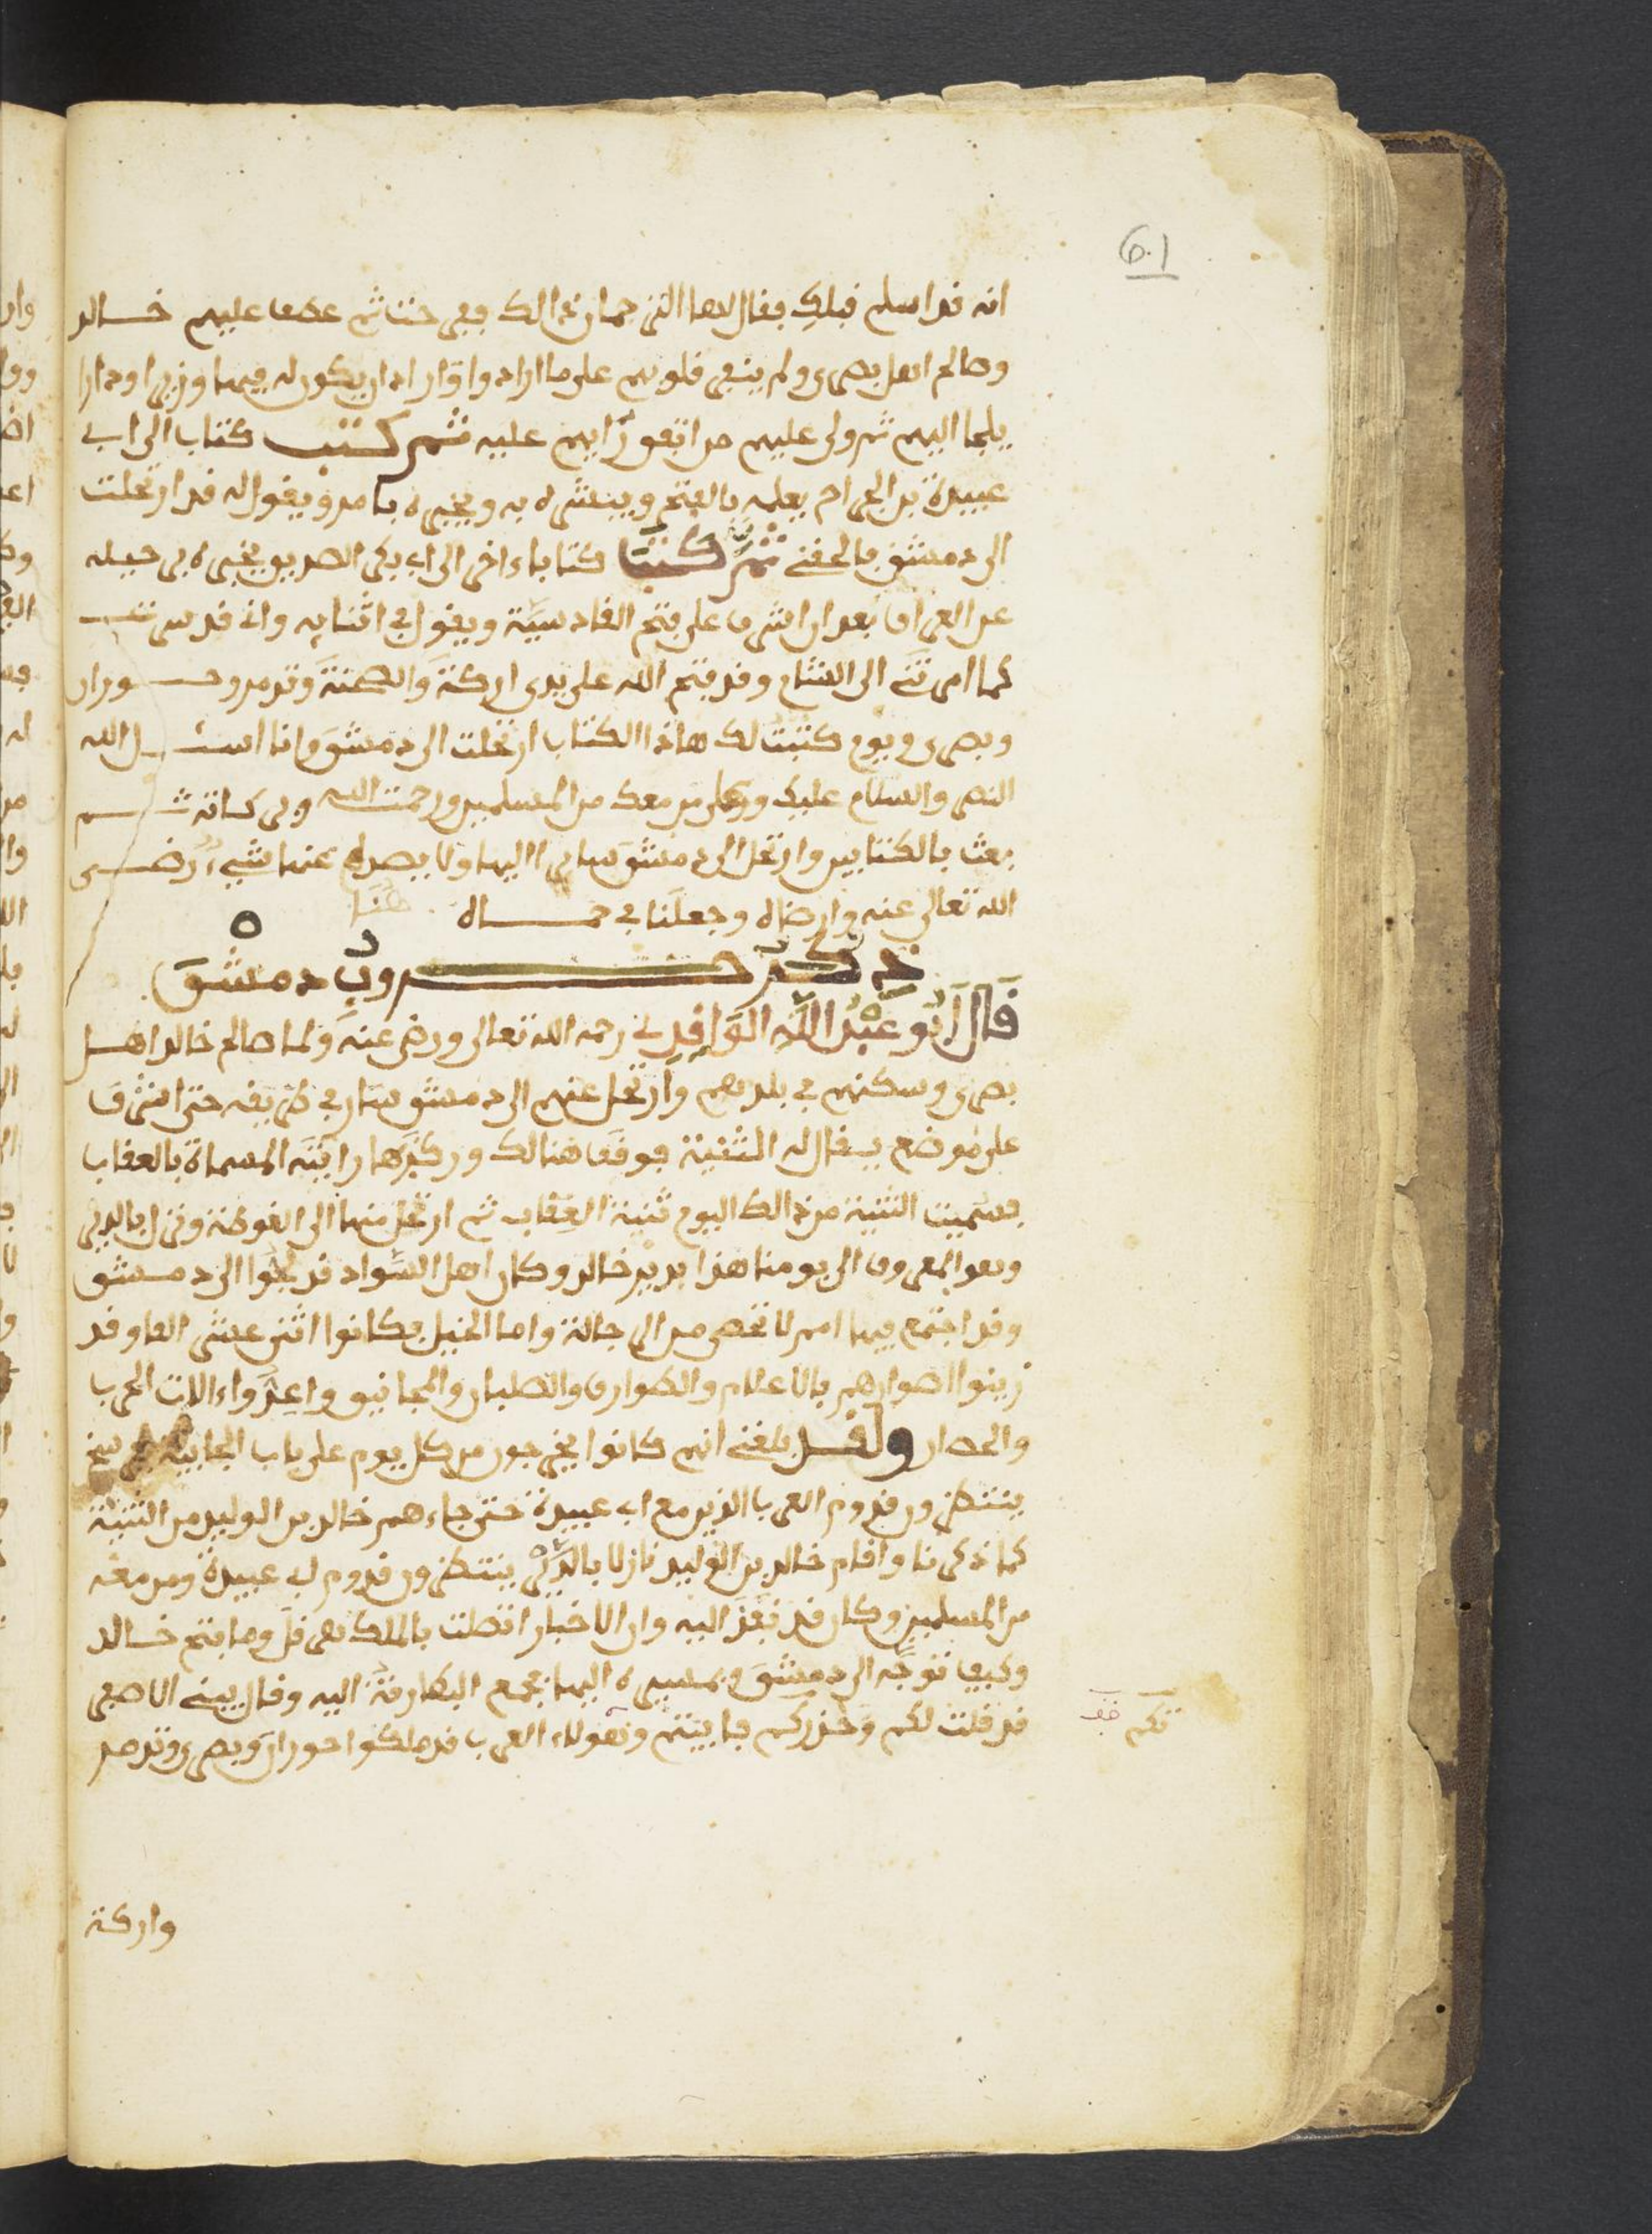 601
انه قد اسلم قبلك فقال لها الذي جمان ذالك ففرحت ثم عطف عليهم خالد
وصالح اهل بصرى ولم ينفر قلوبهم على ما ارادوا واراد ان يكون له فيهم وزيرا وداارا
يلجا اليهم ثم ولى عليهم من اتفق رايهم عليه ثم كتب كتاب الى ابي
عبيدة بن الجراح يعلمه بالفتح ويبشره به ويخبره بامره ويقول له قد ارتحلت
الى دمشق فالحقني ثم كتب كتابا ءاخر الى ابي بكر الصديق يخبره برحيله
عن العراق بعد ان اشرف على فتح القادسية ويقول في اثنايه واني قد سرت
كما امرتني الى الشام وقد فتح الله على يدي اركة والصخنة وتدمر وحوران
وبصرى ويوم كتبت لك هاذا الكتاب ارتحلت الى دمشق وانا اسئل الله
النصر والسلام عليك وعلى من معك من المسلمين ورحمت الله وبركاته ثم
بعث بالكتابين وارتحل الى دمشق سايرا اليها ولا يصده عنها شيء رضى
الله تعالى عنه وارضاه وجعلنا في حماه هنا
ذكر حروب دمشق
قال ابو عبد الله الواقدي رحمه الله تعالى ورضي عنه ولما صالح خالد اهل
بصرى وسكنهم في بلدهم وارتحل عنهم الى دمشق سار في طريقه حتى اشرف
على موضع يقال له الثنية فوقف هنالك وركزها رايته المسماة بالعقاب
فسميت الثنية من ذالك اليوم ثنية العقاب ثم ارتحل منها الى الغوطة ونزل بالدير
وهو المعروف الى يومنا هذا بدير خالد وكان اهل السواد قد لجوا الى دمشق
وقد اجتمع فيها امم لا تحصى من الرجالة واما الخيل فكانوا اثنى عشر الفا وقد
زينوا اصوارهم بالاعلام والطوارق والصلبان والمجانيق واعدوا ءالات الحرب
والحصار ولقد بلغني انهم كانوا يخرجون من كل يوم على باب الجابية
ينتظرون قدوم العرب الذين مع ابي عبيدة حتى جاءهم خالد بن الوليد من الثنية
كما ذكرنا واقام خالد بن الوليد نازلا بالدير ينتظرون قدوم ابي عبيدة ومن معه
من المسلمين وكان قد نفذ اليه وان الاخبار اتصلت بالملك هرقل وما فتح خالد
وكيف توجه الى دمشق ومسيره اليها فجمع البطارقة اليه وقال يبني الاصفر
قد قلت لكم وحذركم فابيتم وهولاء العرب قد ملكوا حوران وبصرى وتدمر
تكم
واركة